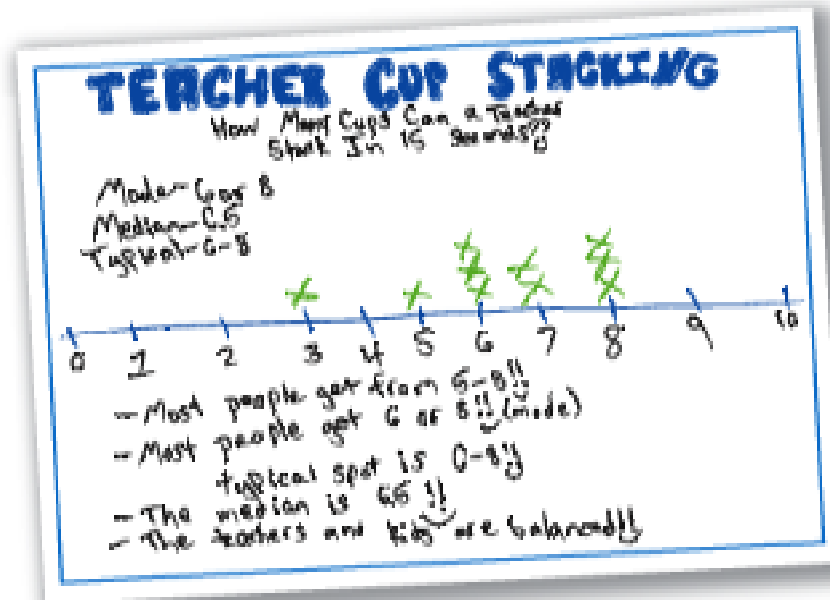 TEACHER CUP STACKING
How Many Cups Can a Teacher
Stack In 15 Seconds??
Mode- 6 or 8
Median- 6.5
Typical- 6-8
0 1 2 3 4 5 6 7 8 9 10
- Most people get from 5-8!!
- Most people get 6 or 8!! (mode)
typical spot is 0-8!!
- The median is 6.5 !!
- The teachers and kids are balanced!!